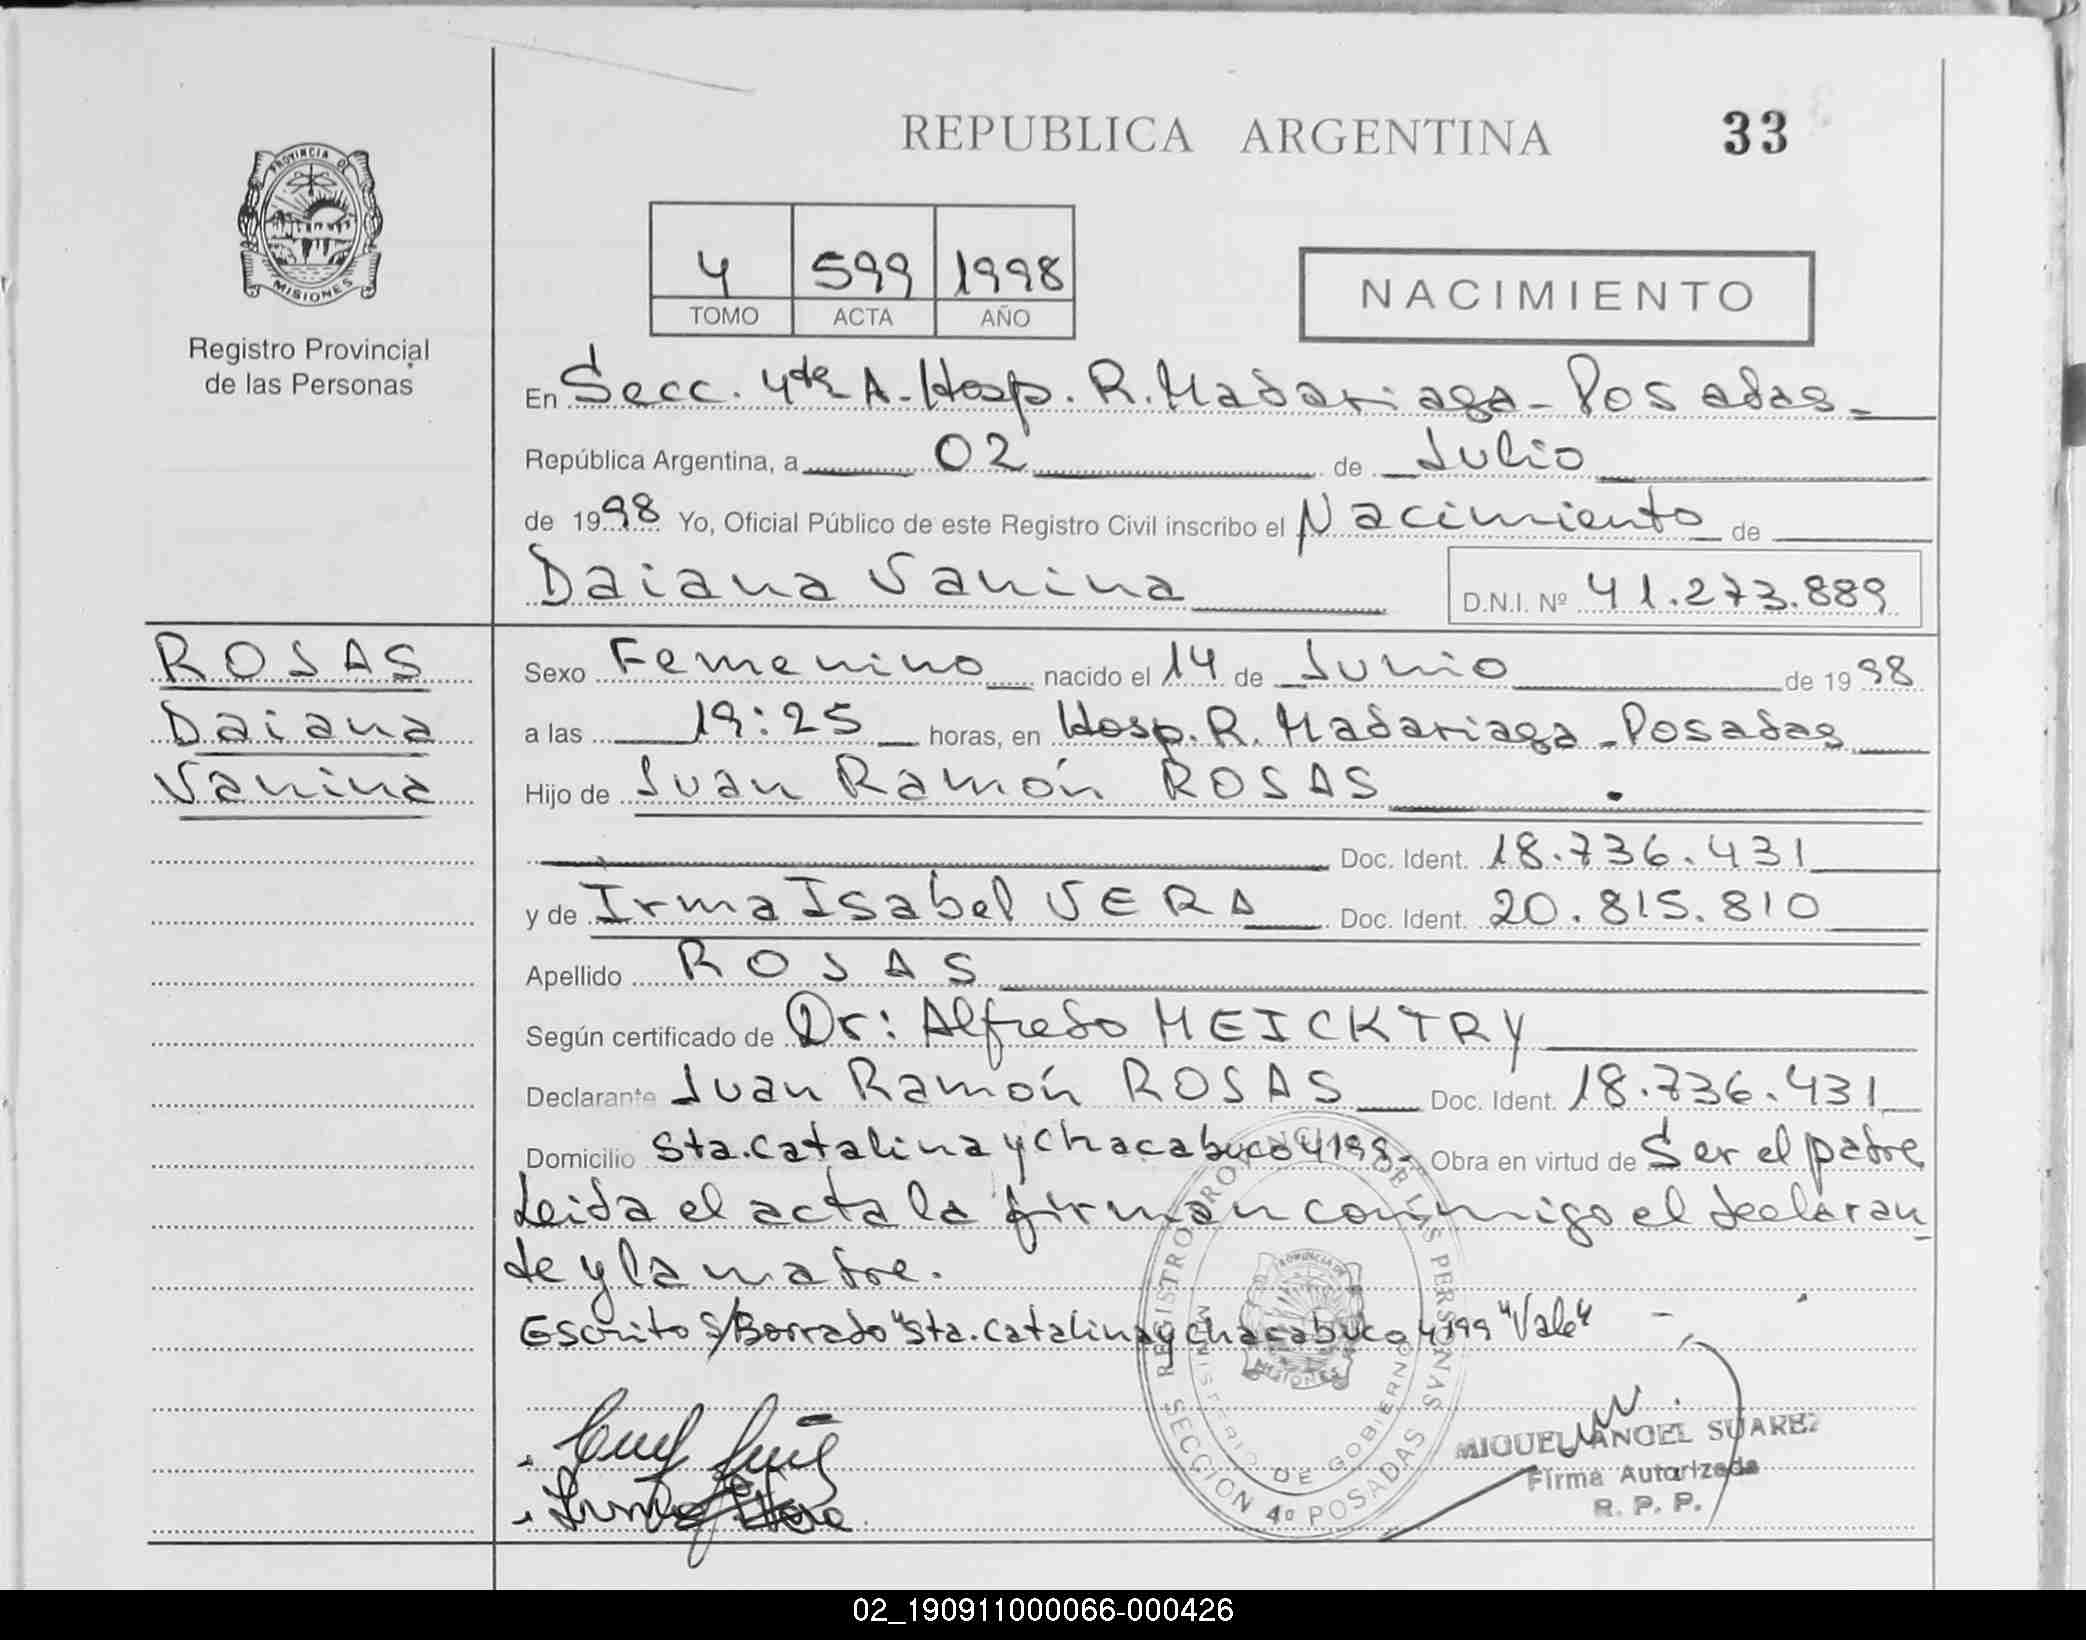 REPUBLICA ARGENTINA
33
PROVINCIA DE
MISIONES
Registro Provincial
de las Personas
4 599 1998
TOMO ACTA AÑO
NACIMIENTO
En Secc. 4ta A. Hosp. R. Madariaga - Posadas -
República Argentina, a 02 de Julio
de 1998 Yo, Oficial Público de este Registro Civil inscribo el Nacimiento de
Daiana Vanina D.N.I. Nº 41.273.889
ROSAS
Daiana
Vanina
Sexo Femenino nacido el 14 de Junio de 1998
a las 19:25 horas, en Hosp. R. Madariaga - Posadas
Hijo de Juan Ramón ROSAS
Doc. Ident. 18.736.431
y de Irma Isabel VERA Doc. Ident. 20.815.810
Apellido ROSAS
Según certificado de Dr: Alfredo MEICKTRY
Declarante Juan Ramón ROSAS Doc. Ident. 18.736.431
Domicilio Sta. Catalina y Chacabuco 4199 - Obra en virtud de Ser el padre
Leida el acta la firman conmigo el declaran
te y la madre.
Escrito S/Borrado "Sta. Catalina y Chacabuco 4199 "Vale"
REGISTRO PROVINCIAL DE LAS PERSONAS
MINISTERIO DE GOBIERNO
PROVINCIA DE
MISIONES
SECCION 4º POSADAS
MIGUEL ANGEL SUAREZ
Firma Autorizada
R. P. P.
02_190911000066-000426